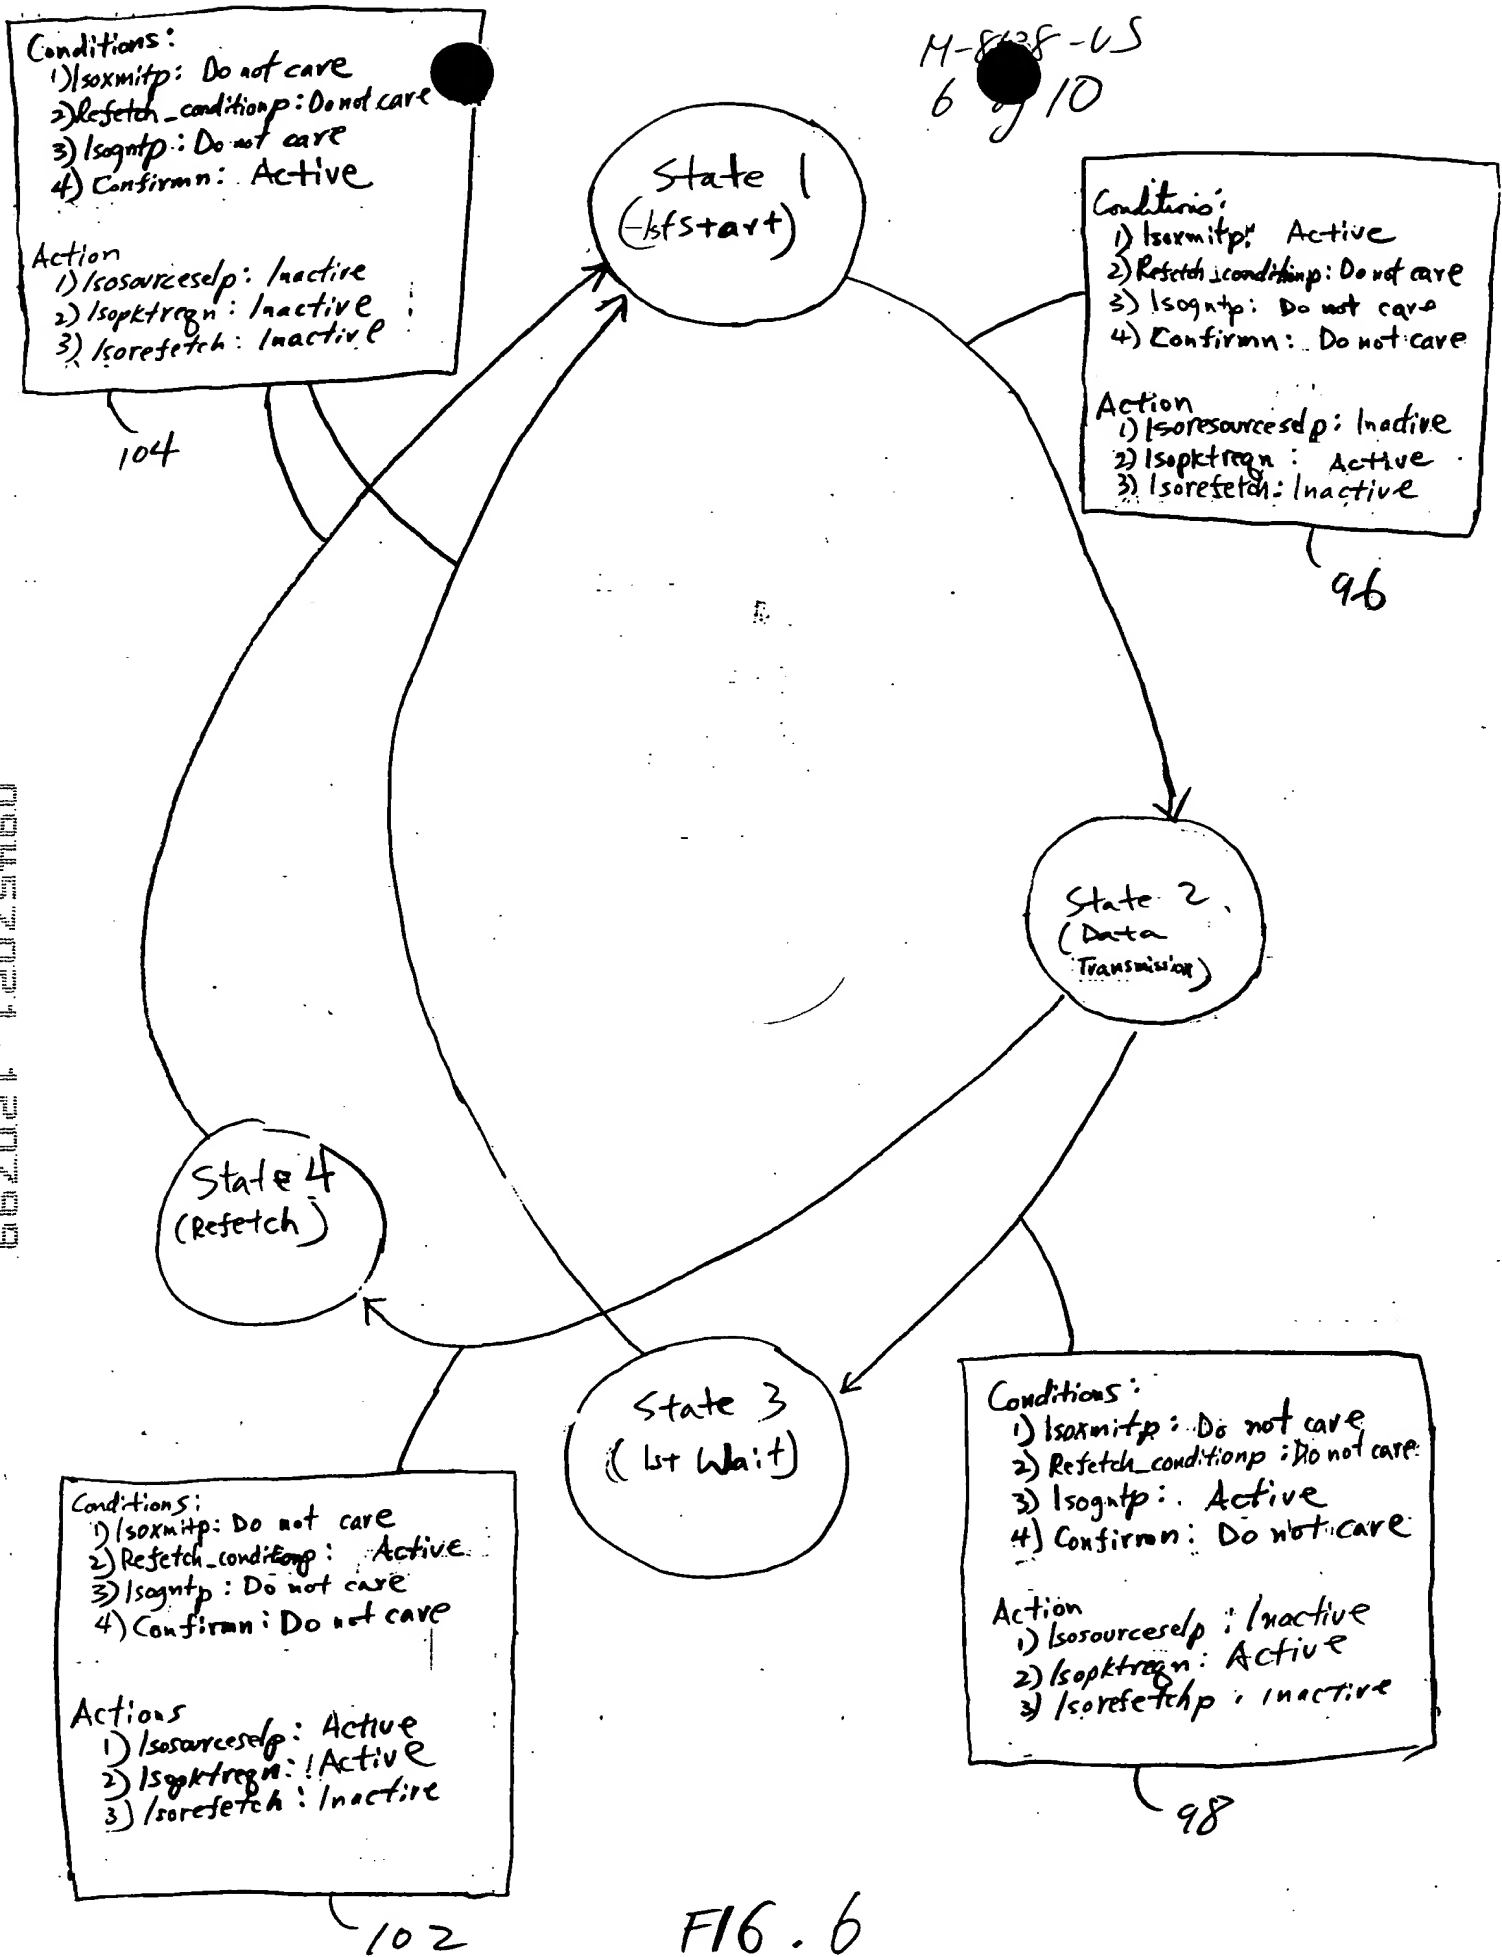 Conditions:
1) Isoxmitp: Do not care
2) Refetch_conditionp: Do not care
3) Isogntp: Do not care
4) Confirmn: Active
Action
1) Isosourceselp: Inactive
2) Isopktreqn: Inactive
3) Isorefetch: Inactive
104
-US
6 of 10
State 1
(1st Start)
Conditions:
1) Isoxmitp: Active
2) Refetch_conditionp: Do not care
3) Isogntp: Do not care
4) Confirmn: Do not care
Action
1) Isoresourceselp: Inactive
2) Isopktreqn: Active
3) Isorefetch: Inactive
96
State 2
(Data
Transmission)
State 4
(Refetch)
State 3
(1st Wait)
Conditions:
1) Isoxmitp: Do not care
2) Refetch_conditionp: Do not care
3) Isogntp: Active
4) Confirmn: Do not care
Action
1) Isosourceselp: Inactive
2) Isopktreqn: Active
3) Isorefetchp: Inactive
98
Conditions:
1) Isoxmitp: Do not care
2) Refetch_conditionp: Active
3) Isogntp: Do not care
4) Confirmn: Do not care
Actions
1) Isosourceselp: Active
2) Isopktreqn: Active
3) Isorefetch: Inactive
102
FIG. 6